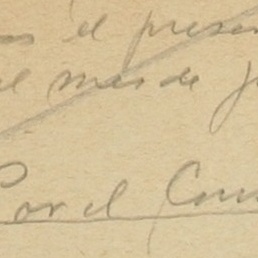 el presen
el mes de J
Por el Com